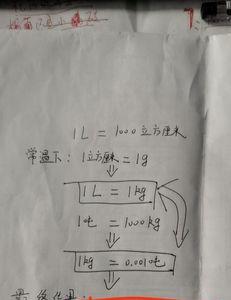 1L = 1000立方厘米
常温下：1立方厘米 = 1g
1L = 1kg
1吨 = 1000kg
1kg = 0.001吨